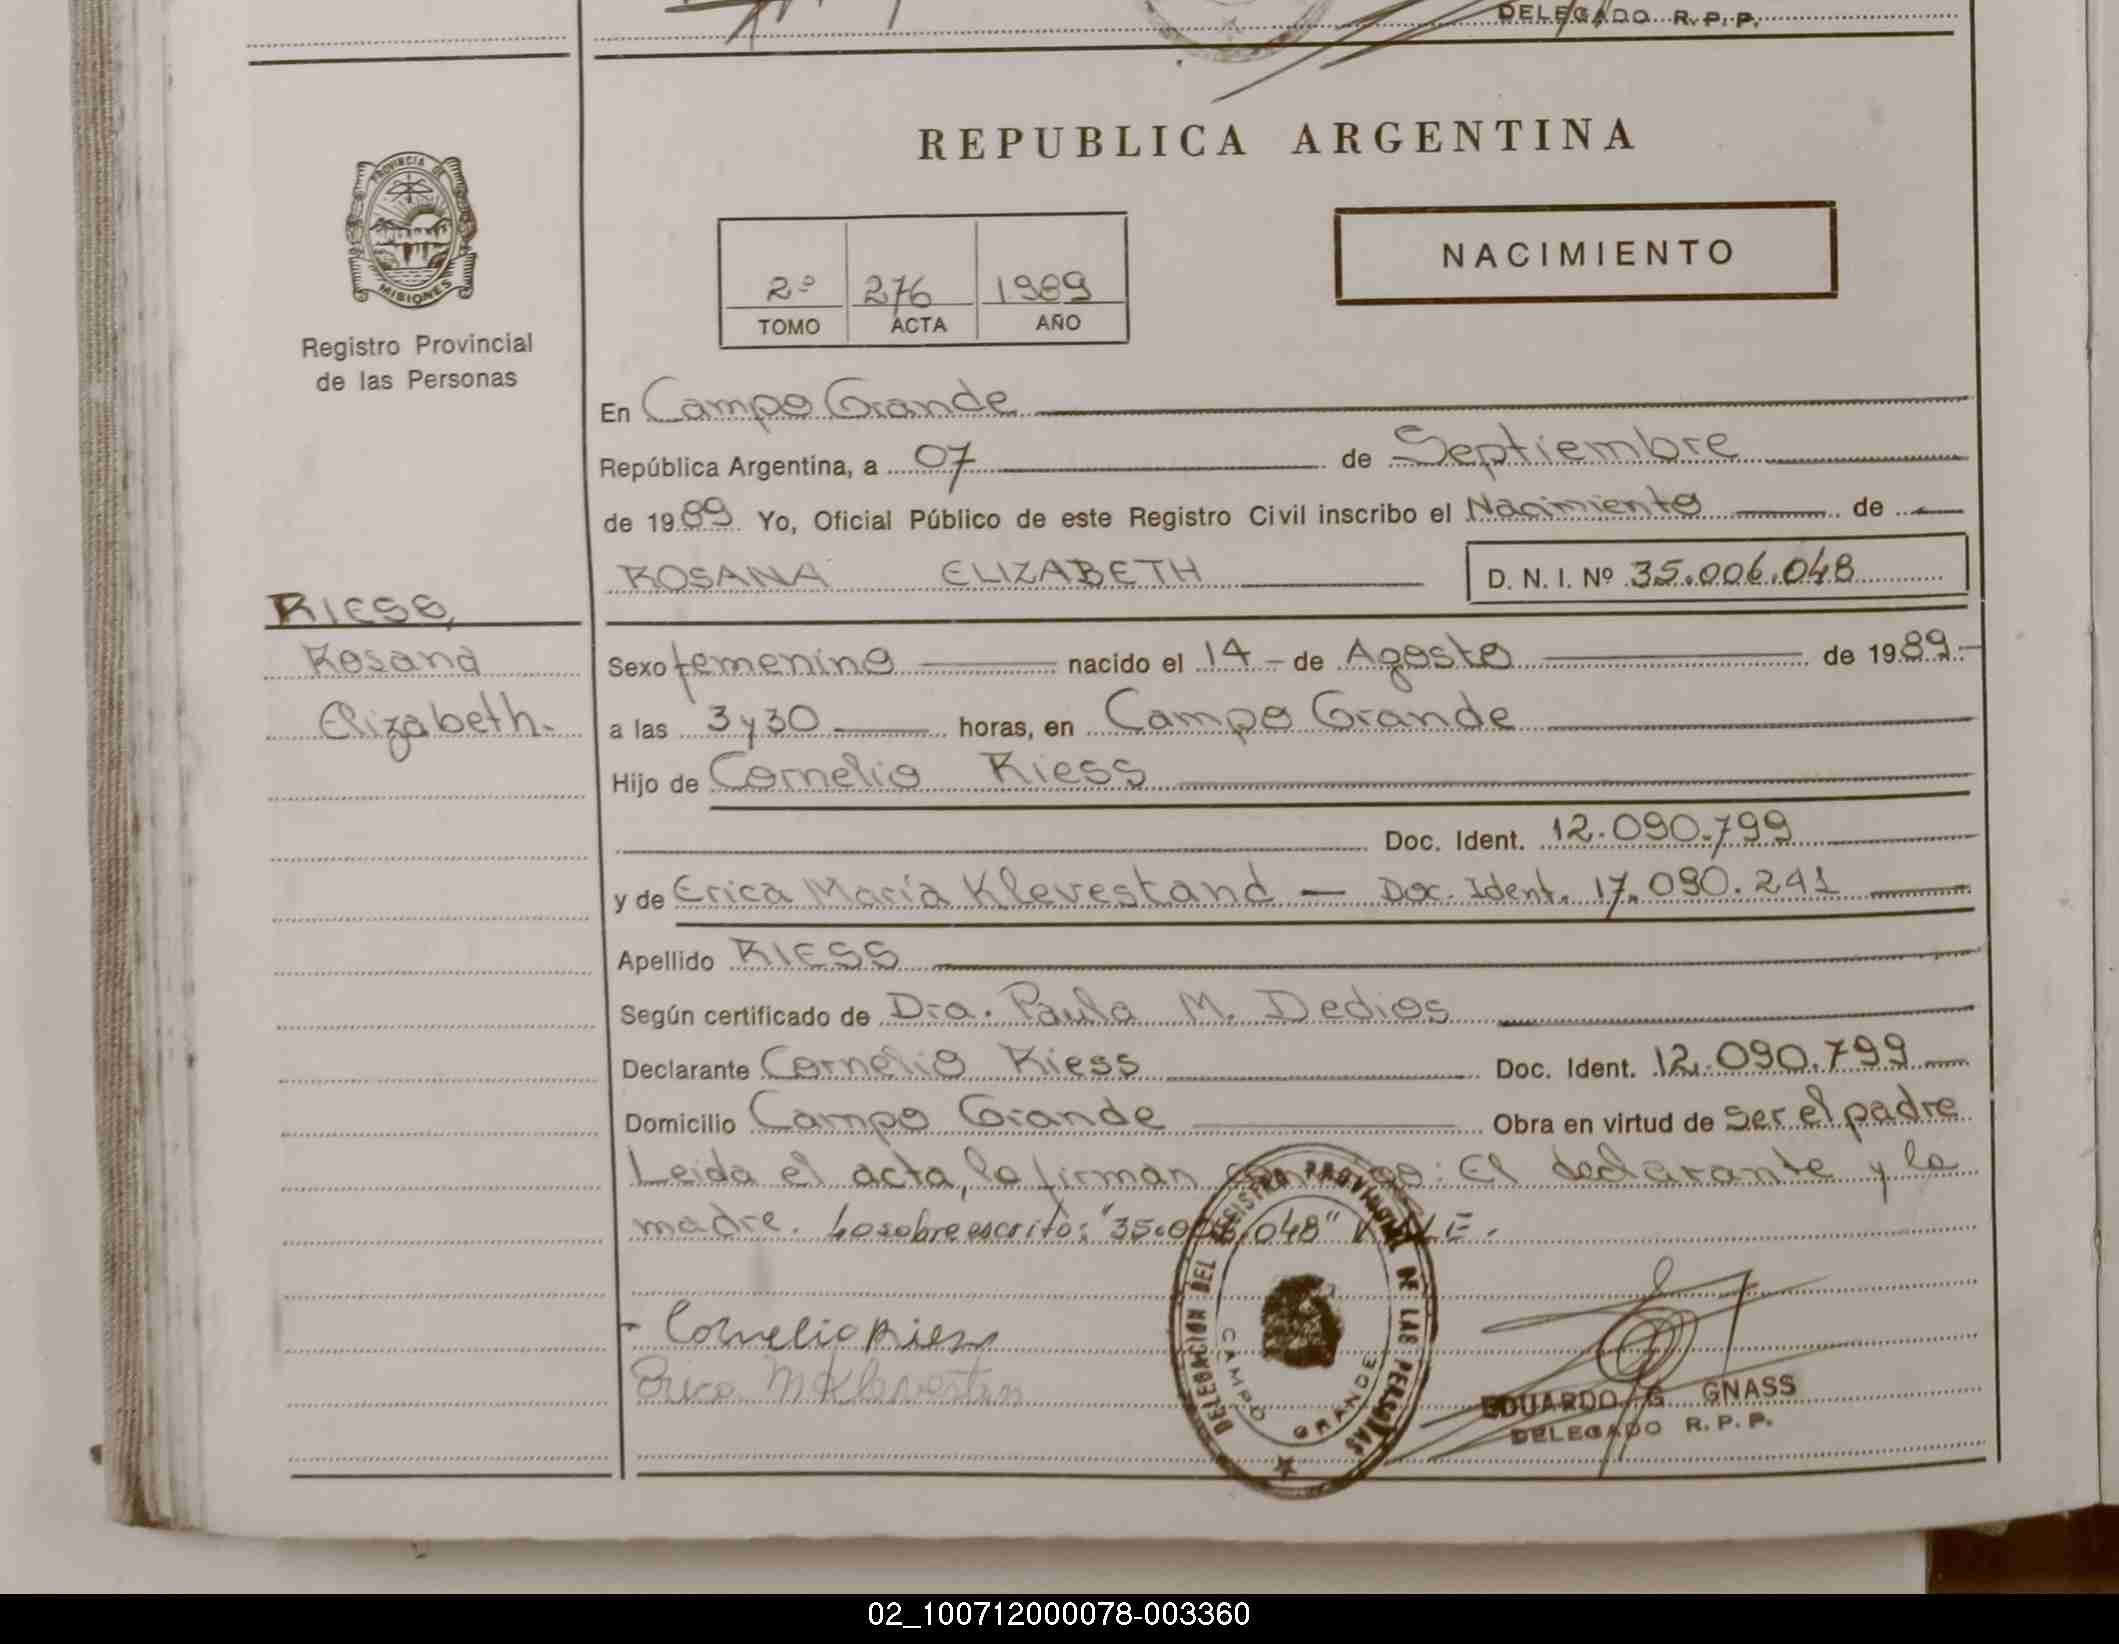 DELEGADO R.P.P.
REPUBLICA ARGENTINA
PROVINCIA DE
MISIONES
NACIMIENTO
2º 276 1989
TOMO ACTA AÑO
Registro Provincial
de las Personas
En Campo Grande
República Argentina, a 07 de Septiembre
de 1989 Yo, Oficial Público de este Registro Civil inscribo el Nacimiento de
ROSANA ELIZABETH D. N. I. Nº 35.006.048
RIESS,
Rosana
Elizabeth.
Sexo femenino nacido el 14 - de Agosto de 1989.-
a las 3 y 30 horas, en Campo Grande
Hijo de Cornelio Riess
Doc. Ident. 12.090.799
y de Erica María Klevestand — Doc. Ident. 17.090.241
Apellido RIESS
Según certificado de Dra. Paula M. Dedios
Declarante Cornelio Riess Doc. Ident. 12.090.799
Domicilio Campo Grande Obra en virtud de ser el padre
Leida el acta, la firman conmigo: El declarante y la
madre. Lo sobreescrito: "35.006.048" VALE.
Cornelio Riess
Erica M Klevestan
DELEGACION DEL REGISTRO PROVINCIAL DE LAS PERSONAS
CAMPO GRANDE
EDUARDO G GNASS
DELEGADO R.P.P.
02_100712000078-003360